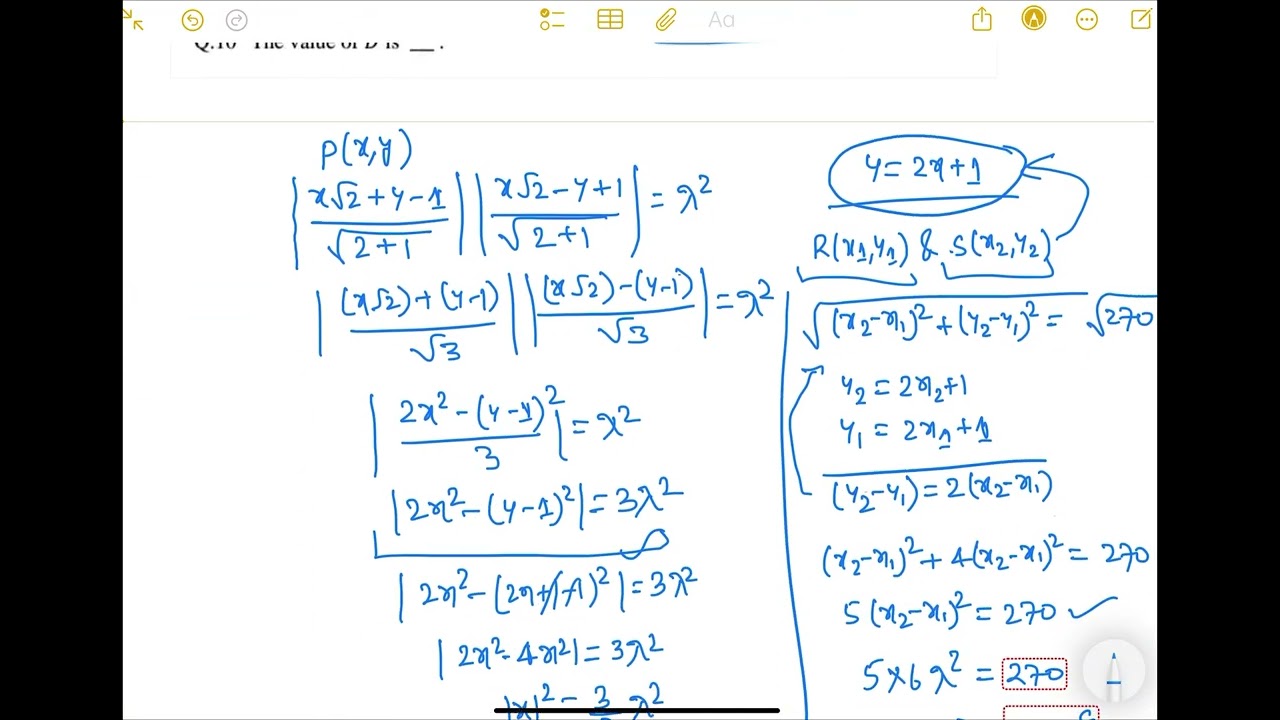 Aa
Q.10 The value of D is __ .
P(x,y)
|x√2+y-1 / √2+1| |x√2-y+1 / √2+1| = λ²
|(x√2)+(y-1) / √3| |(x√2)-(y-1) / √3| = λ²
|2x²-(y-1)² / 3| = λ²
|2x²-(y-1)²| = 3λ²
|2x²-(2x+1-1)²| = 3λ²
|2x²-4x²| = 3λ²
y = 2x+1
R(x₁,y₁) & S(x₂,y₂)
√(x₂-x₁)²+(y₂-y₁)² = √270
y₂ = 2x₂+1
y₁ = 2x₁+1
(y₂-y₁) = 2(x₂-x₁)
(x₂-x₁)²+4(x₂-x₁)² = 270
5(x₂-x₁)² = 270
5×6λ² = 270